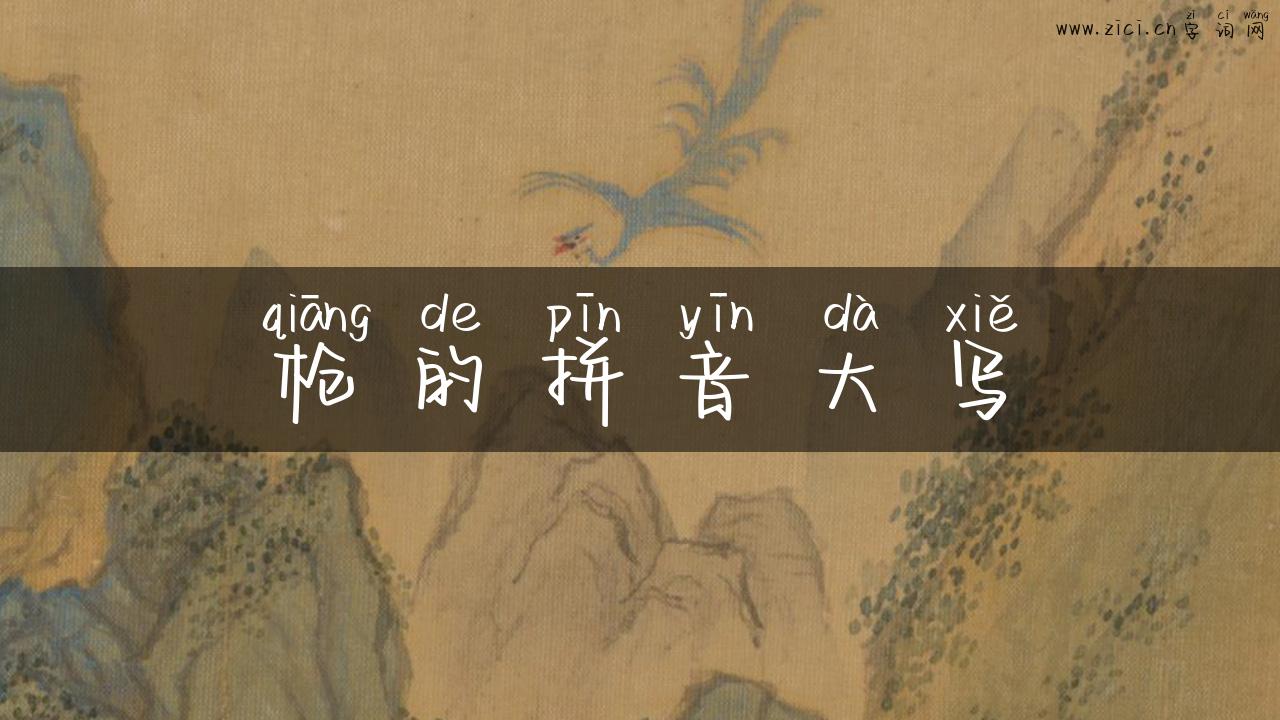 zì cí wǎng
www.zici.cn 字词网
qiāng de pīn yīn dà xiě
枪的拼音大写